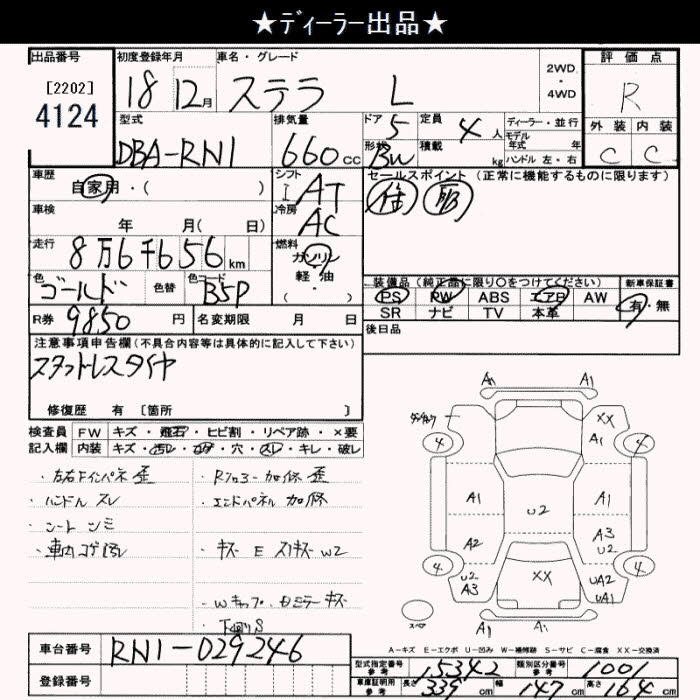 ★ディーラー出品★
出品番号 初度登録年月 車名・グレード 2WD・4WD 評価点
[2202] 18 12月 ステラ L R
4124
型式 排気量 ドア 5 定員 4人 ディーラー・並行 外装 内装
モデル年式 年式
DBA-RN1 660cc 形状 BW 積載 kg ハンドル 左・右 C C
車歴 シフト セールスポイント (正常に機能するものに限ります)
自家用・( ) I AT
車検 冷房
年 月( 日) AC
走行 燃料
8万6千656km ガソリン
軽・油
・( )
色 色替 色コード 装備品 (純正品に限り〇をつけてください) 新車保証書
ゴールド B5P PS PW ABS エアB AW 有・無
SR ナビ TV 本革
R券 9850円 名変期限 月 日 後日品
注意事項申告欄(不具合内容等は具体的に記入して下さい)
スタットレスタイヤ
修復歴 有 [箇所 ]
検査員 FW キズ・飛石・ヒビ割・リペア跡・×要
記入欄 内装 キズ・汚レ・コゲ・穴・スレ・キレ・破レ
・左右Fインパネ歪 ・Rフロアー加修歪
・ハンドルスレ ・エンドパネル加修
・シートシミ
・車内コゲ汚レ ・キズ E スリキズ W2
・Wキャップ・Dミラーキズ
・下廻りS
A1 A1
XX
A1
4 4
A1 U2 A1
A2 A3
U2
4 XX 4
U2 UA2
A3 UA1
スペア A1 A1
A-キズ E-エクボ U-凹み W-補修跡 S-サビ C-腐食 XX-交換済
車台番号 RN1-029246
登録番号
型式指定番号 参考 15342 類別区分番号 参考 1001
車庫証明用 参考 長さ 339cm 幅 147cm 高さ 164cm